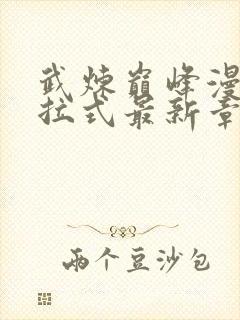 武炼巅峰漫
拉式最新章
两个豆沙包